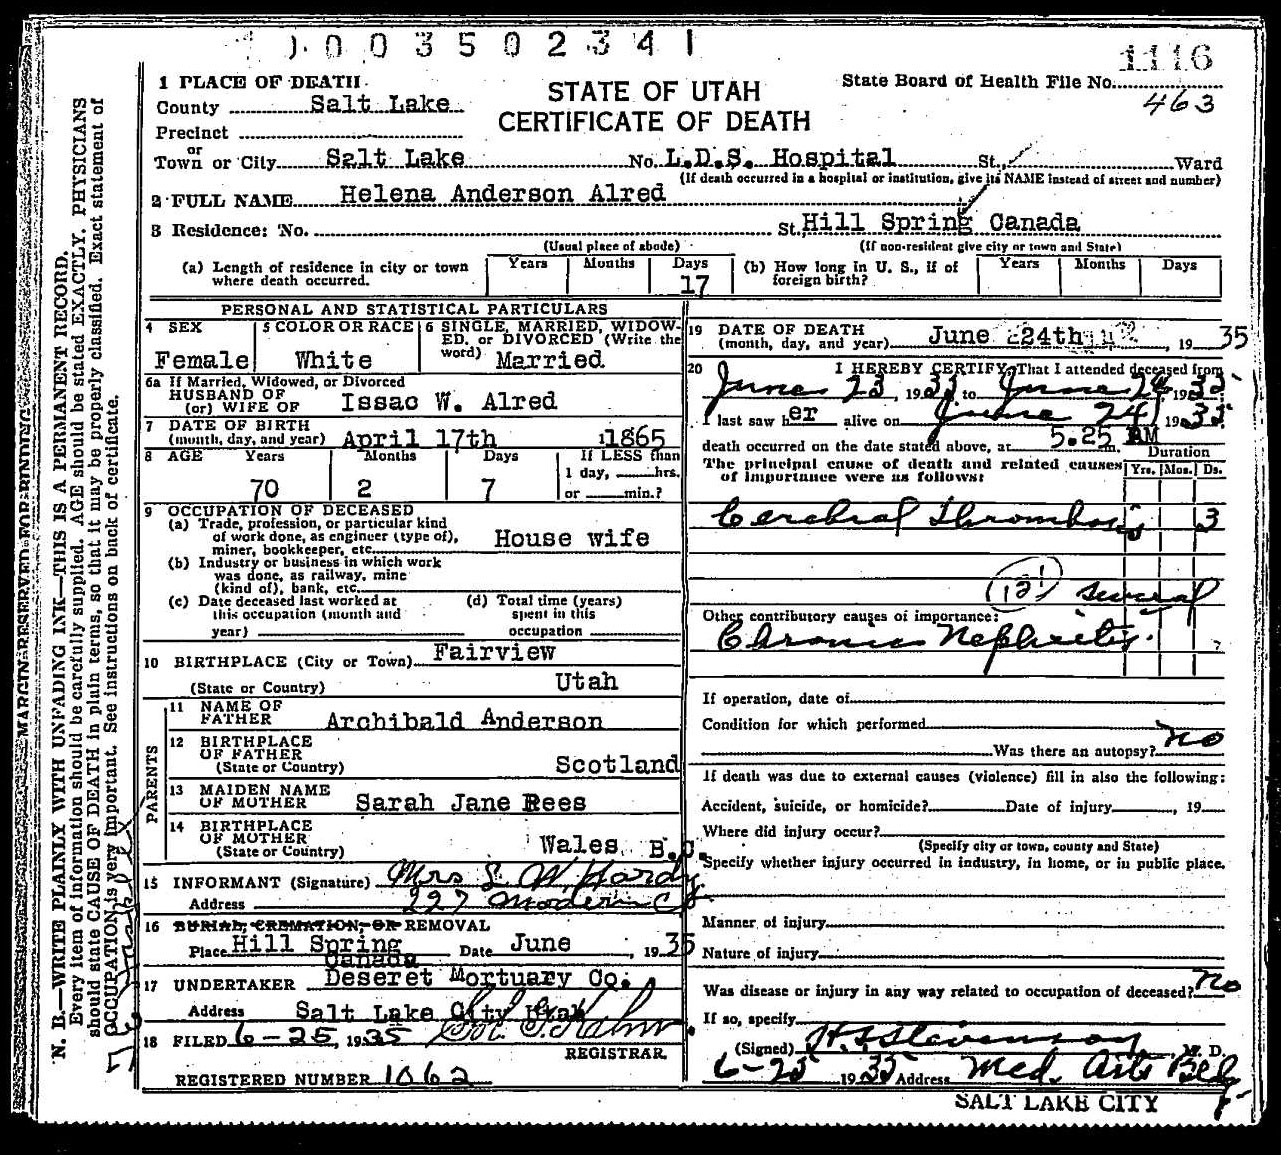 1 0 0 3 5 0 2 3 4 1
1116
1 PLACE OF DEATH
STATE OF UTAH
State Board of Health File No.
County Salt Lake
463
CERTIFICATE OF DEATH
Precinct
or
Town or City Salt Lake No. L.D.S. Hospital St., Ward
(If death occurred in a hospital or institution, give its NAME instead of street and number)
2 FULL NAME Helena Anderson Alred
3 Residence: No. St. Hill Spring Canada
(Usual place of abode) (If non-resident give city or town and State)
(a) Length of residence in city or town where death occurred. Years Months Days 17
(b) How long in U. S., if of foreign birth? Years Months Days
PERSONAL AND STATISTICAL PARTICULARS
4 SEX Female
5 COLOR OR RACE White
6 SINGLE, MARRIED, WIDOWED, or DIVORCED (Write the word) Married
6a If Married, Widowed, or Divorced
HUSBAND OF
(or) WIFE OF Issac W. Alred
7 DATE OF BIRTH
(month, day, and year) April 17th 1865
8 AGE Years Months Days If LESS than
1 day, hrs.
70 2 7 or min.?
9 OCCUPATION OF DECEASED
(a) Trade, profession, or particular kind
of work done, as engineer (type of),
miner, bookkeeper, etc. House wife
(b) Industry or business in which work
was done, as railway, mine
(kind of), bank, etc.
(c) Date deceased last worked at
this occupation (month and
year)
(d) Total time (years)
spent in this
occupation
10 BIRTHPLACE (City or Town) Fairview
(State or Country) Utah
PARENTS
11 NAME OF
FATHER Archibald Anderson
12 BIRTHPLACE
OF FATHER
(State or Country) Scotland
13 MAIDEN NAME
OF MOTHER Sarah Jane Rees
14 BIRTHPLACE
OF MOTHER
(State or Country) Wales B.C.
15 INFORMANT (Signature) Mrs L W. Hardy
Address 227 Modern Ct
16 BURIAL, CREMATION, OR REMOVAL
Place Hill Spring Date June , 1935
Canada
17 UNDERTAKER Deseret Mortuary Co.
Address Salt Lake City Utah
18 FILED 6-25, 1935
REGISTRAR.
REGISTERED NUMBER 1062
19 DATE OF DEATH
(month, day, and year) June 24th , 19 35
20 I HEREBY CERTIFY, That I attended deceased from
June 23, 1935, to June 24, 1935
I last saw her alive on June 24, 1935
death occurred on the date stated above, at 5.25 AM m.
Duration
The principal cause of death and related causes
of importance were as follows:
Yrs. Mos. Ds.
Cerebral Thrombosis 3
several
Other contributory causes of importance:
Chronic Nephritis. ?
If operation, date of
Condition for which performed
Was there an autopsy? no
If death was due to external causes (violence) fill in also the following:
Accident, suicide, or homicide? Date of injury , 19
Where did injury occur?
(Specify city or town, county and State)
Specify whether injury occurred in industry, in home, or in public place.
Manner of injury
Nature of injury
Was disease or injury in any way related to occupation of deceased? no
If so, specify
(Signed) Stevenson, M. D.
6-25 1935 Address Med. Arts Bldg
SALT LAKE CITY
MARGIN RESERVED FOR BINDING
N. B.—WRITE PLAINLY WITH UNFADING INK—THIS IS A PERMANENT RECORD.
Every item of information should be carefully supplied. AGE should be stated EXACTLY. PHYSICIANS
should state CAUSE OF DEATH in plain terms, so that it may be properly classified. Exact statement of
OCCUPATION is very important. See instructions on back of certificate.